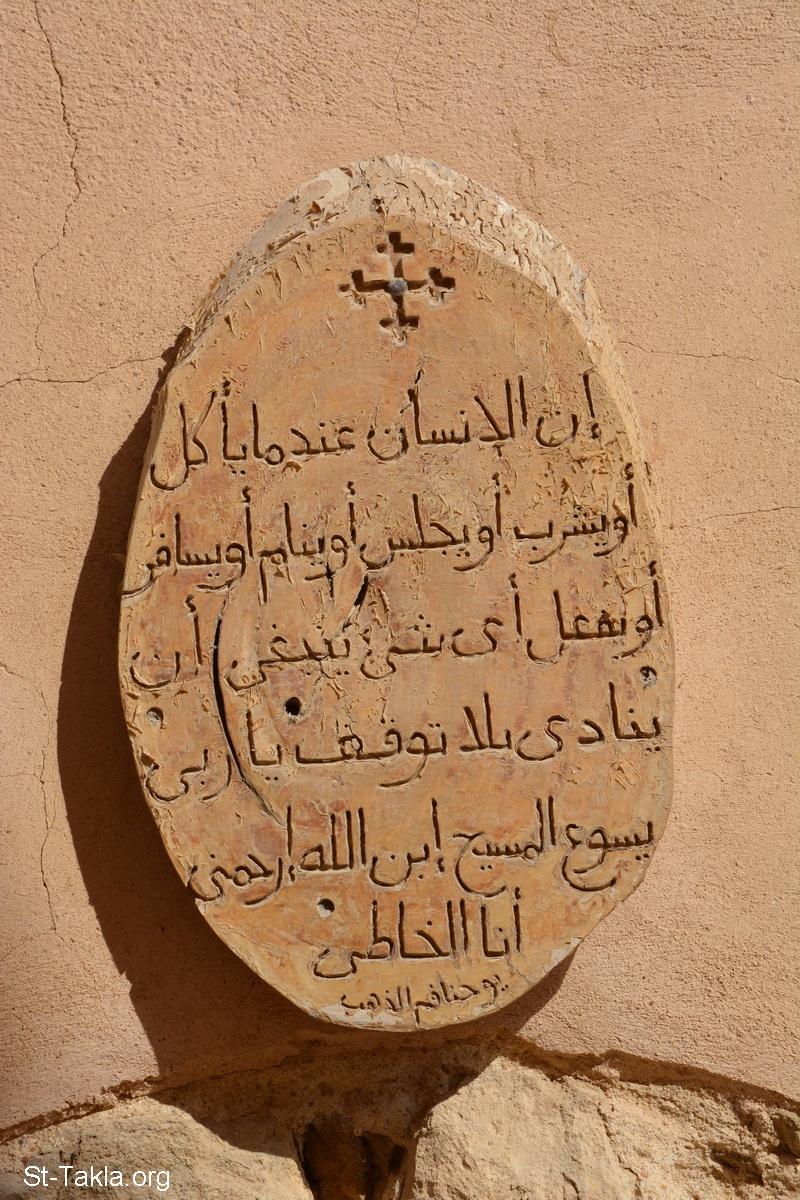 إن الإنسان عندما يأكل
أو يشرب أو يجلس أو ينام أو يسافر
أو يفعل أى شئ ينبغى أن
ينادى بلا توقف يا ربى
يسوع المسيح إبن الله إرحمنى
أنا الخاطى
يوحنا فم الذهب
St-Takla.org